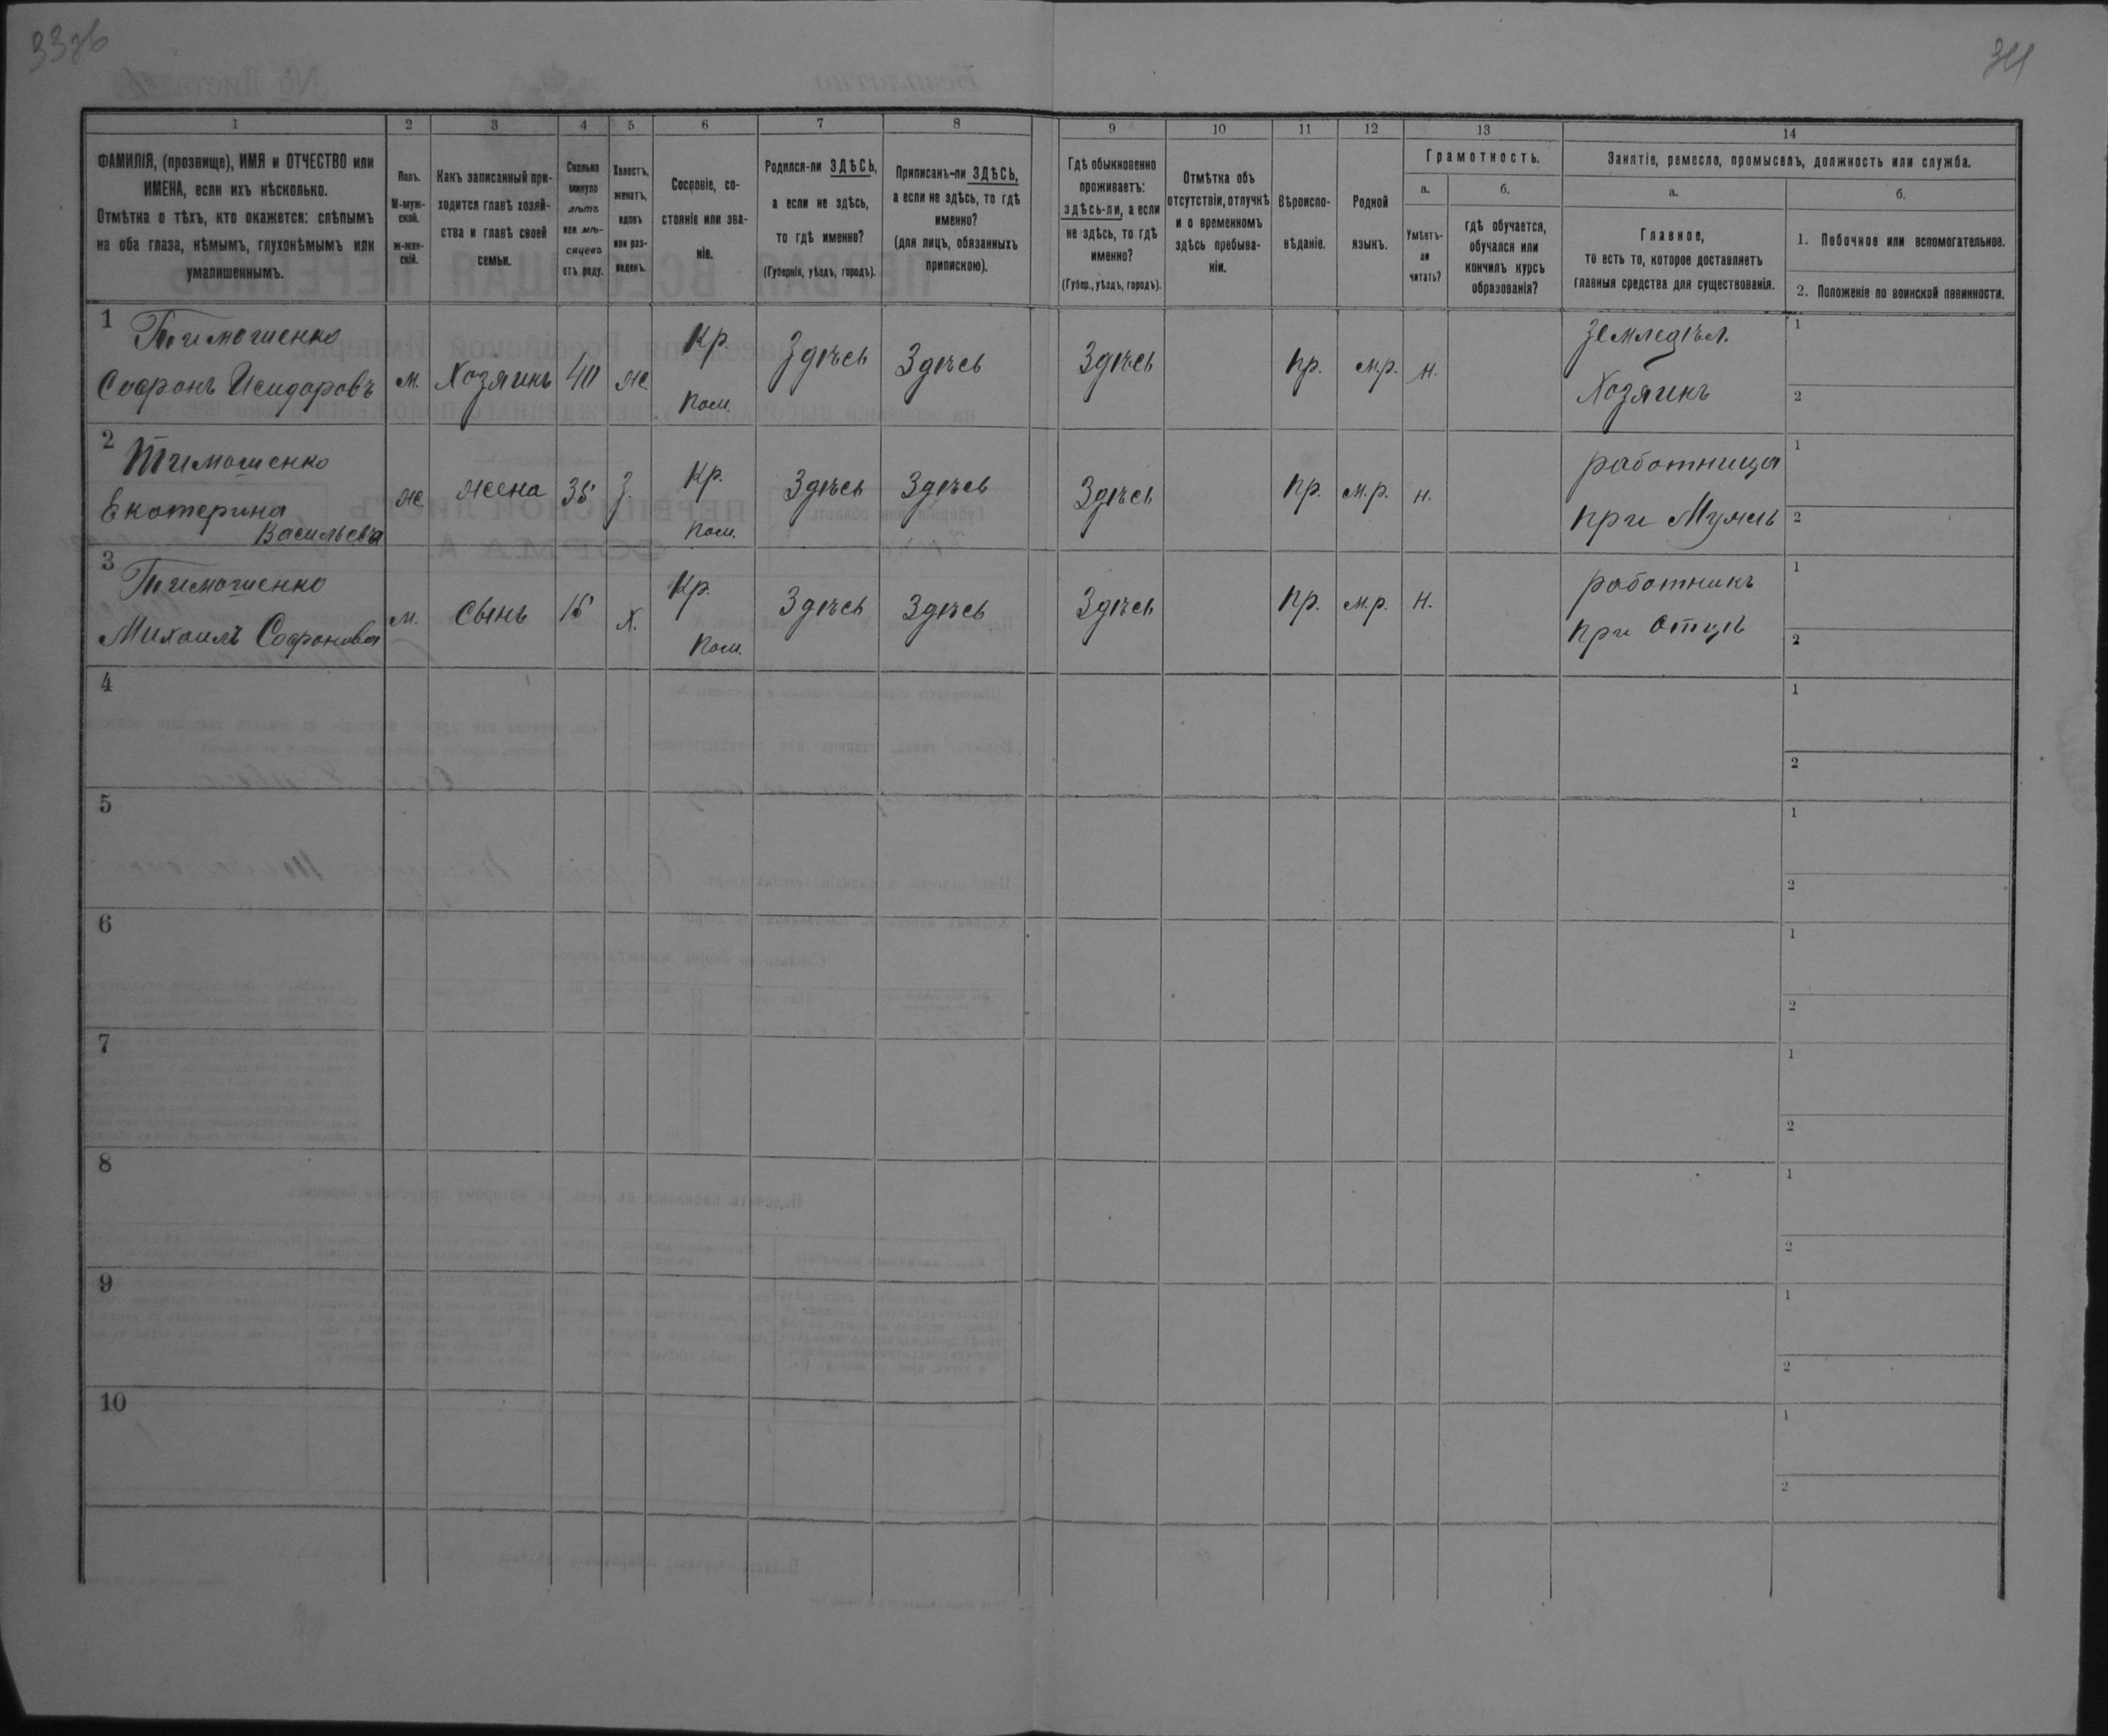 33об
34
1 2 3 4 5 6 7 8 9 10 11 12 13 14
ФАМИЛІЯ, (прозвище), ИМЯ и ОТЧЕСТВО или
ИМЕНА, если ихъ нѣсколько.
Отмѣтка о тѣхъ, кто окажется: слѣпымъ
на оба глаза, нѣмымъ, глухонѣмымъ или
умалишеннымъ.
Полъ.
М-муж-
ской.
ж-жен-
скій.
Какъ записанный при-
ходится главѣ хозяй-
ства и главѣ своей
семьи.
Сколько
минуло
лѣтъ
или мѣ-
сяцевъ
отъ роду.
Холостъ,
женатъ,
вдовъ
или раз-
веденъ.
Сословіе, со-
стояніе или зва-
ніе.
Родился-ли ЗДѢСЬ,
а если не здѣсь,
то гдѣ именно?
(Губернія, уѣздъ, городъ).
Приписанъ-ли ЗДѢСЬ,
а если не здѣсь, то гдѣ
именно?
(для лицъ, обязанныхъ
припискою).
Гдѣ обыкновенно
проживаетъ:
здѣсь-ли, а если
не здѣсь, то гдѣ
именно?
(Губер., уѣздъ, городъ).
Отмѣтка объ
отсутствіи, отлучкѣ
и о временномъ
здѣсь пребыва-
ніи.
Вѣроиспо-
вѣданіе.
Родной
языкъ.
Грамотность.
а.
Умѣетъ-
ли
читать?
б.
гдѣ обучается,
обучался или
кончилъ курсъ
образованія?
Занятіе, ремесло, промыселъ, должность или служба.
а.
Главное,
то есть то, которое доставляетъ
главныя средства для существованія.
б.
1. Побочное или вспомогательное.
2. Положеніе по воинской повинности.
1 Тимошенко Кр. Земледѣл. 1
Софронъ Исидоровъ м. Хозяинъ 40 ж. Пом. Здѣсь Здѣсь Здѣсь пр. м.р. н. Хозяинъ 2
2 Тимошенко Кр. работница 1
Екатерина ж. жена 35 З. Здѣсь Здѣсь Здѣсь пр. м.р. н. при Мужѣ 2
Васильева Пом.
3 Тимошенко Кр. работникъ 1
Михаилъ Софроновъ м. сынъ 15 Х. Пом. Здѣсь Здѣсь Здѣсь пр. м.р. н. при отцѣ 2
4 1
2
5 1
2
6 1
2
7 1
2
8 1
2
9 1
2
10 1
2